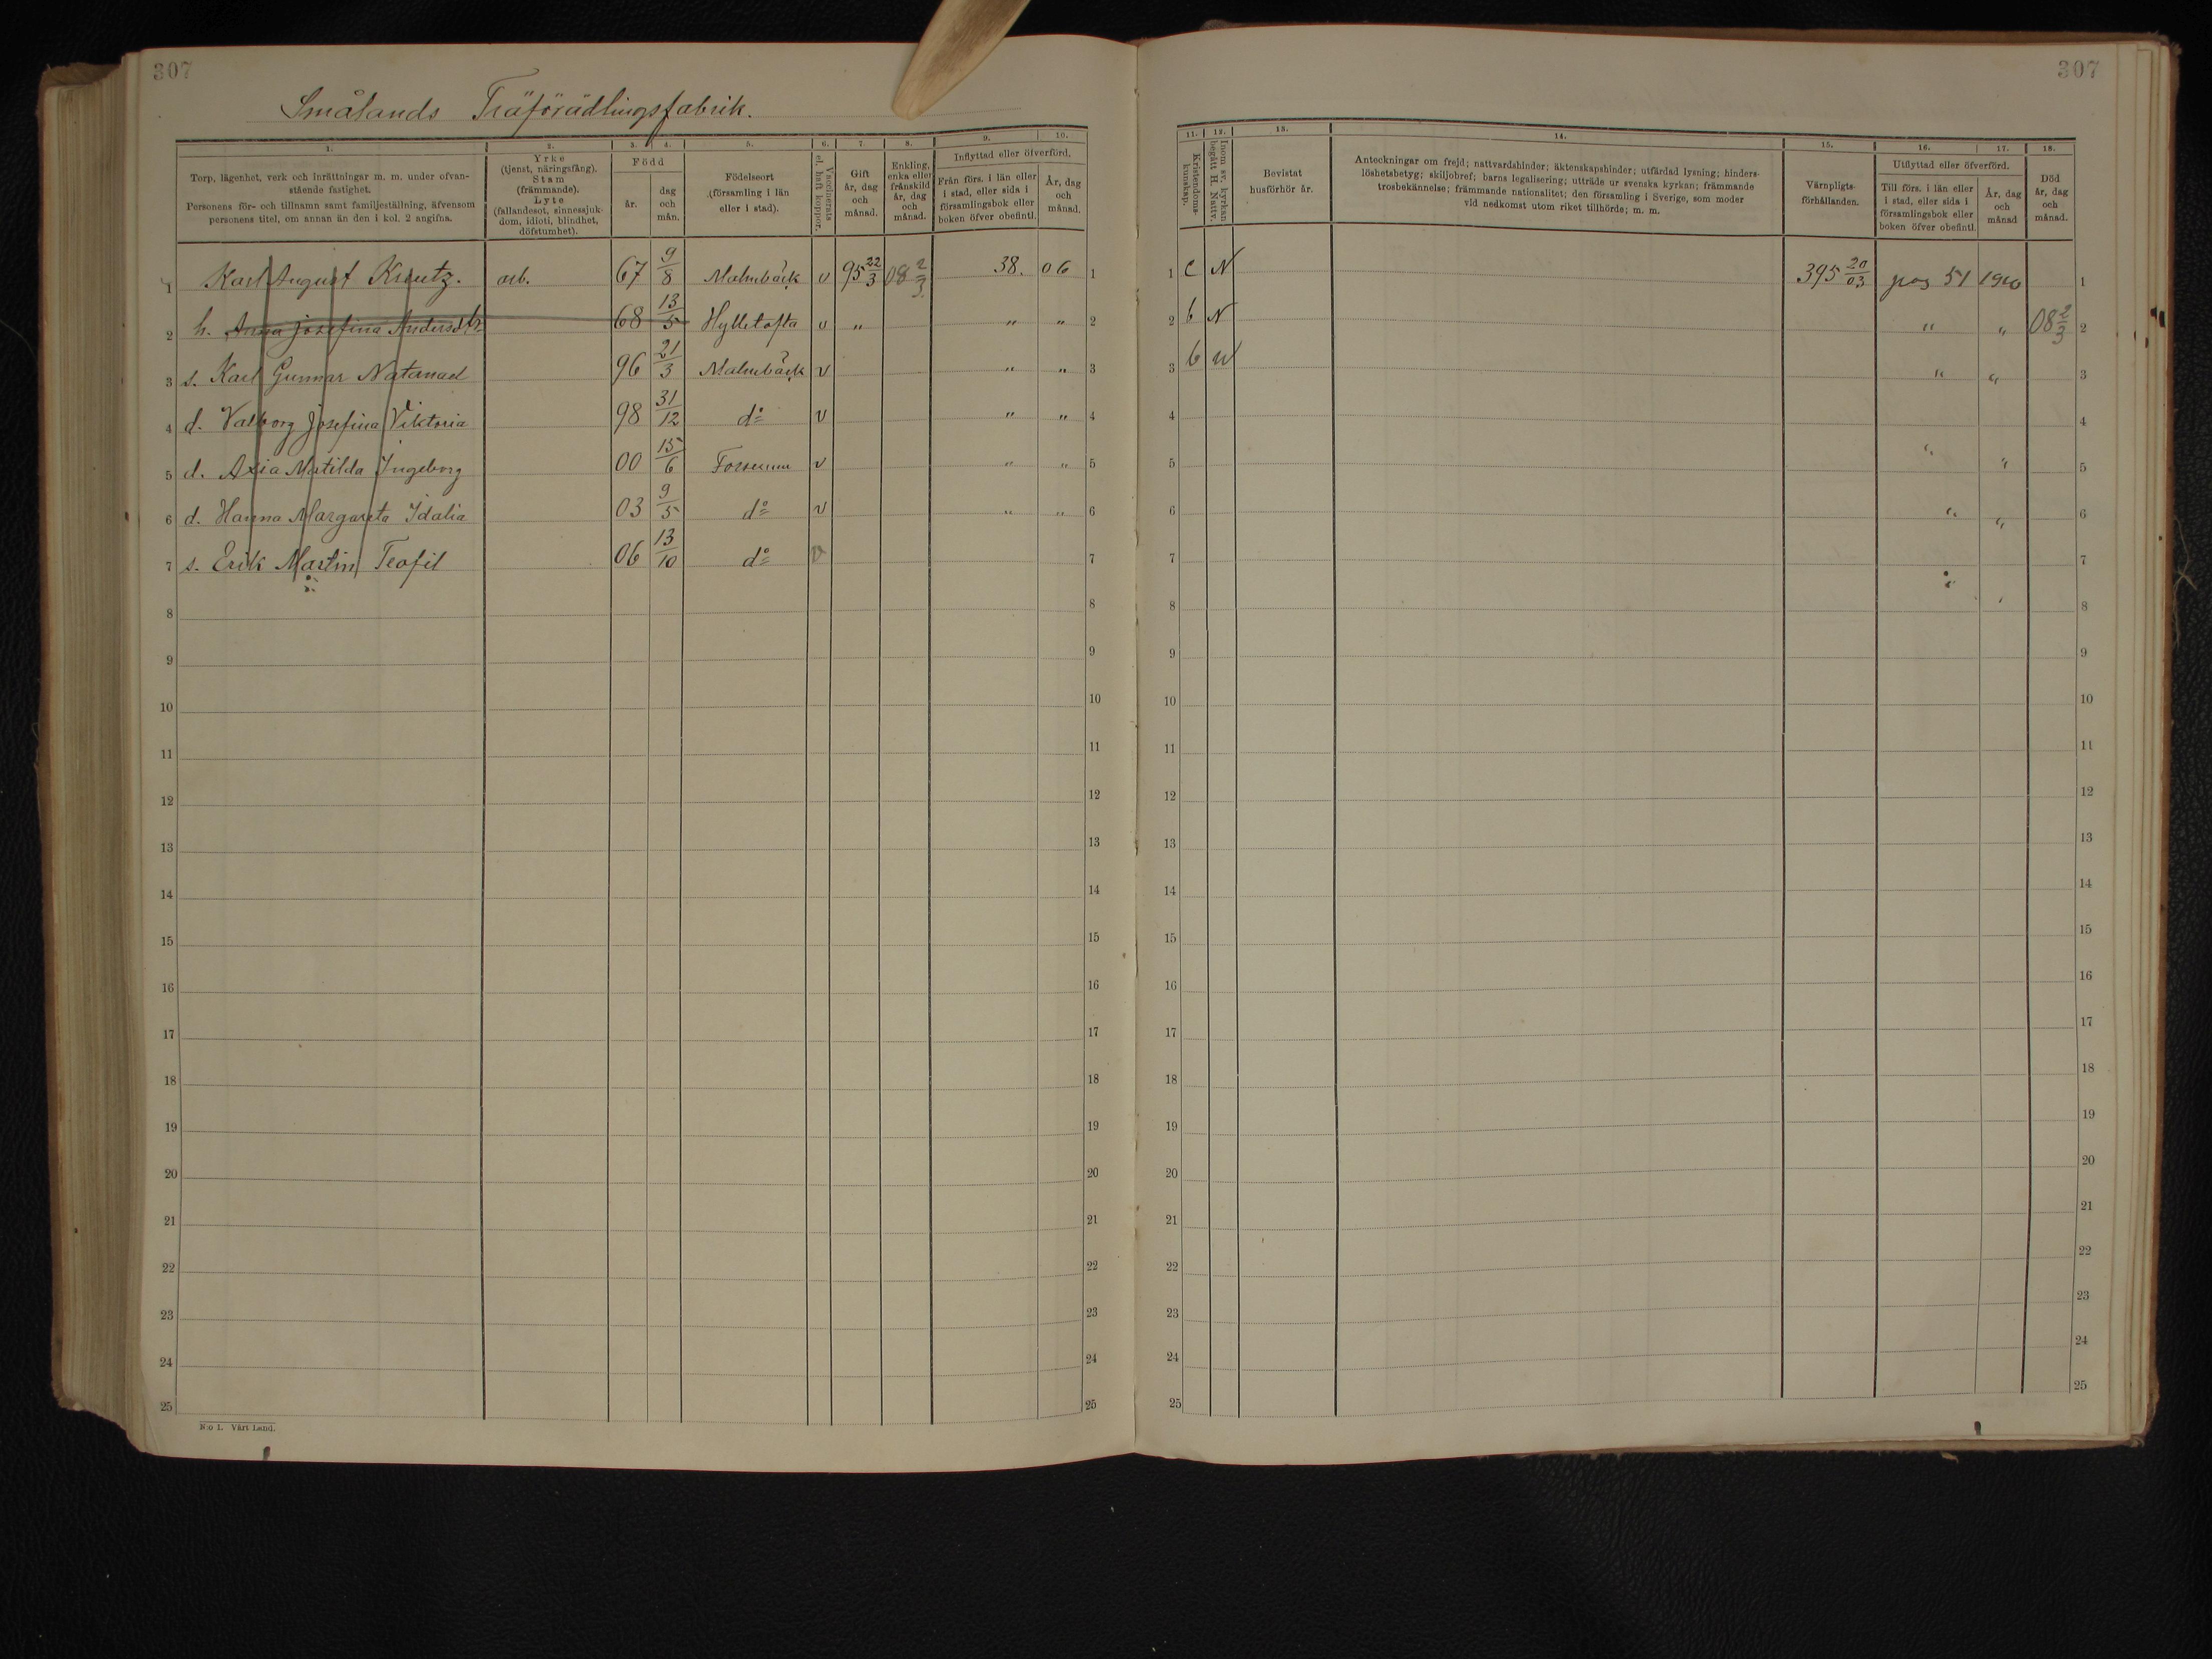 307
Smålands Träförädlingsfabrik.
1. 2. 3. 4. 5. 6. 7. 8. 9. 10.
Torp, lägenhet, verk och inrättningar m. m. under ofvanstående fastighet.
Personens för- och tillnamn samt familjeställning, äfvensom personens titel, om annan än den i kol. 2 angifna.
Yrke (tjenst, näringsfång). Stam (främmande). Lyte (fallandesot, sinnessjukdom, idioti, blindhet, döfstumhet).
Född
år.
dag och mån.
Födelseort (församling i län eller i stad).
Vaccinerats el. haft koppor.
Gift år, dag och månad.
Enkling, enka eller frånskild år, dag och månad.
Inflyttad eller öfverförd.
Från förs. i län eller i stad, eller sida i församlingsbok eller boken öfver obefintl.
År, dag och månad.
1 Karl August Kreutz. arb. 67 9/8 Malmbäck v 95 22/3 08 2/3 38. 06 1
2 h. Anna Josefina Andersdtr 68 13/5 Hylletofta v " " " 2
3 s. Karl Gunnar Natanael 96 21/3 Malmbäck v " " 3
4 d. Valborg Josefina Viktoria 98 31/12 do v " " 4
5 d. Axia Matilda Ingeborg 00 15/6 Forserum v " " 5
6 d. Hanna Margareta Idalia 03 9/5 do v " " 6
7 s. Erik Martin Teofil 06 13/10 do v 7
8 8
9 9
10 10
11 11
12 12
13 13
14 14
15 15
16 16
17 17
18 18
19 19
20 20
21 21
22 22
23 23
24 24
25 25
N:o 1. Vårt Land.
307
11. 12. 13. 14. 15. 16. 17. 18.
Kristendomskunskap.
Inom sv. kyrkan begått H. Nattv.
Bevistat husförhör år.
Anteckningar om frejd; nattvardshinder; äktenskapshinder; utfärdad lysning; hinderslöshetsbetyg; skiljobref; barns legalisering; utträde ur svenska kyrkan; främmande trosbekännelse; främmande nationalitet; den församling i Sverige, som moder vid nedkomst utom riket tillhörde; m. m.
Värnpligtsförhållanden.
Utflyttad eller öfverförd.
Till förs. i län eller i stad, eller sida i församlingsbok eller boken öfver obefintl.
År, dag och månad
Död år, dag och månad.
1 c N 395 20/03 pag 51 1910 1
2 b N " " 08 2/3 2
3 b " " 3
4 4
5 " " 5
6 " " 6
7 " 7
8 8
9 9
10 10
11 11
12 12
13 13
14 14
15 15
16 16
17 17
18 18
19 19
20 20
21 21
22 22
23 23
24 24
25 25